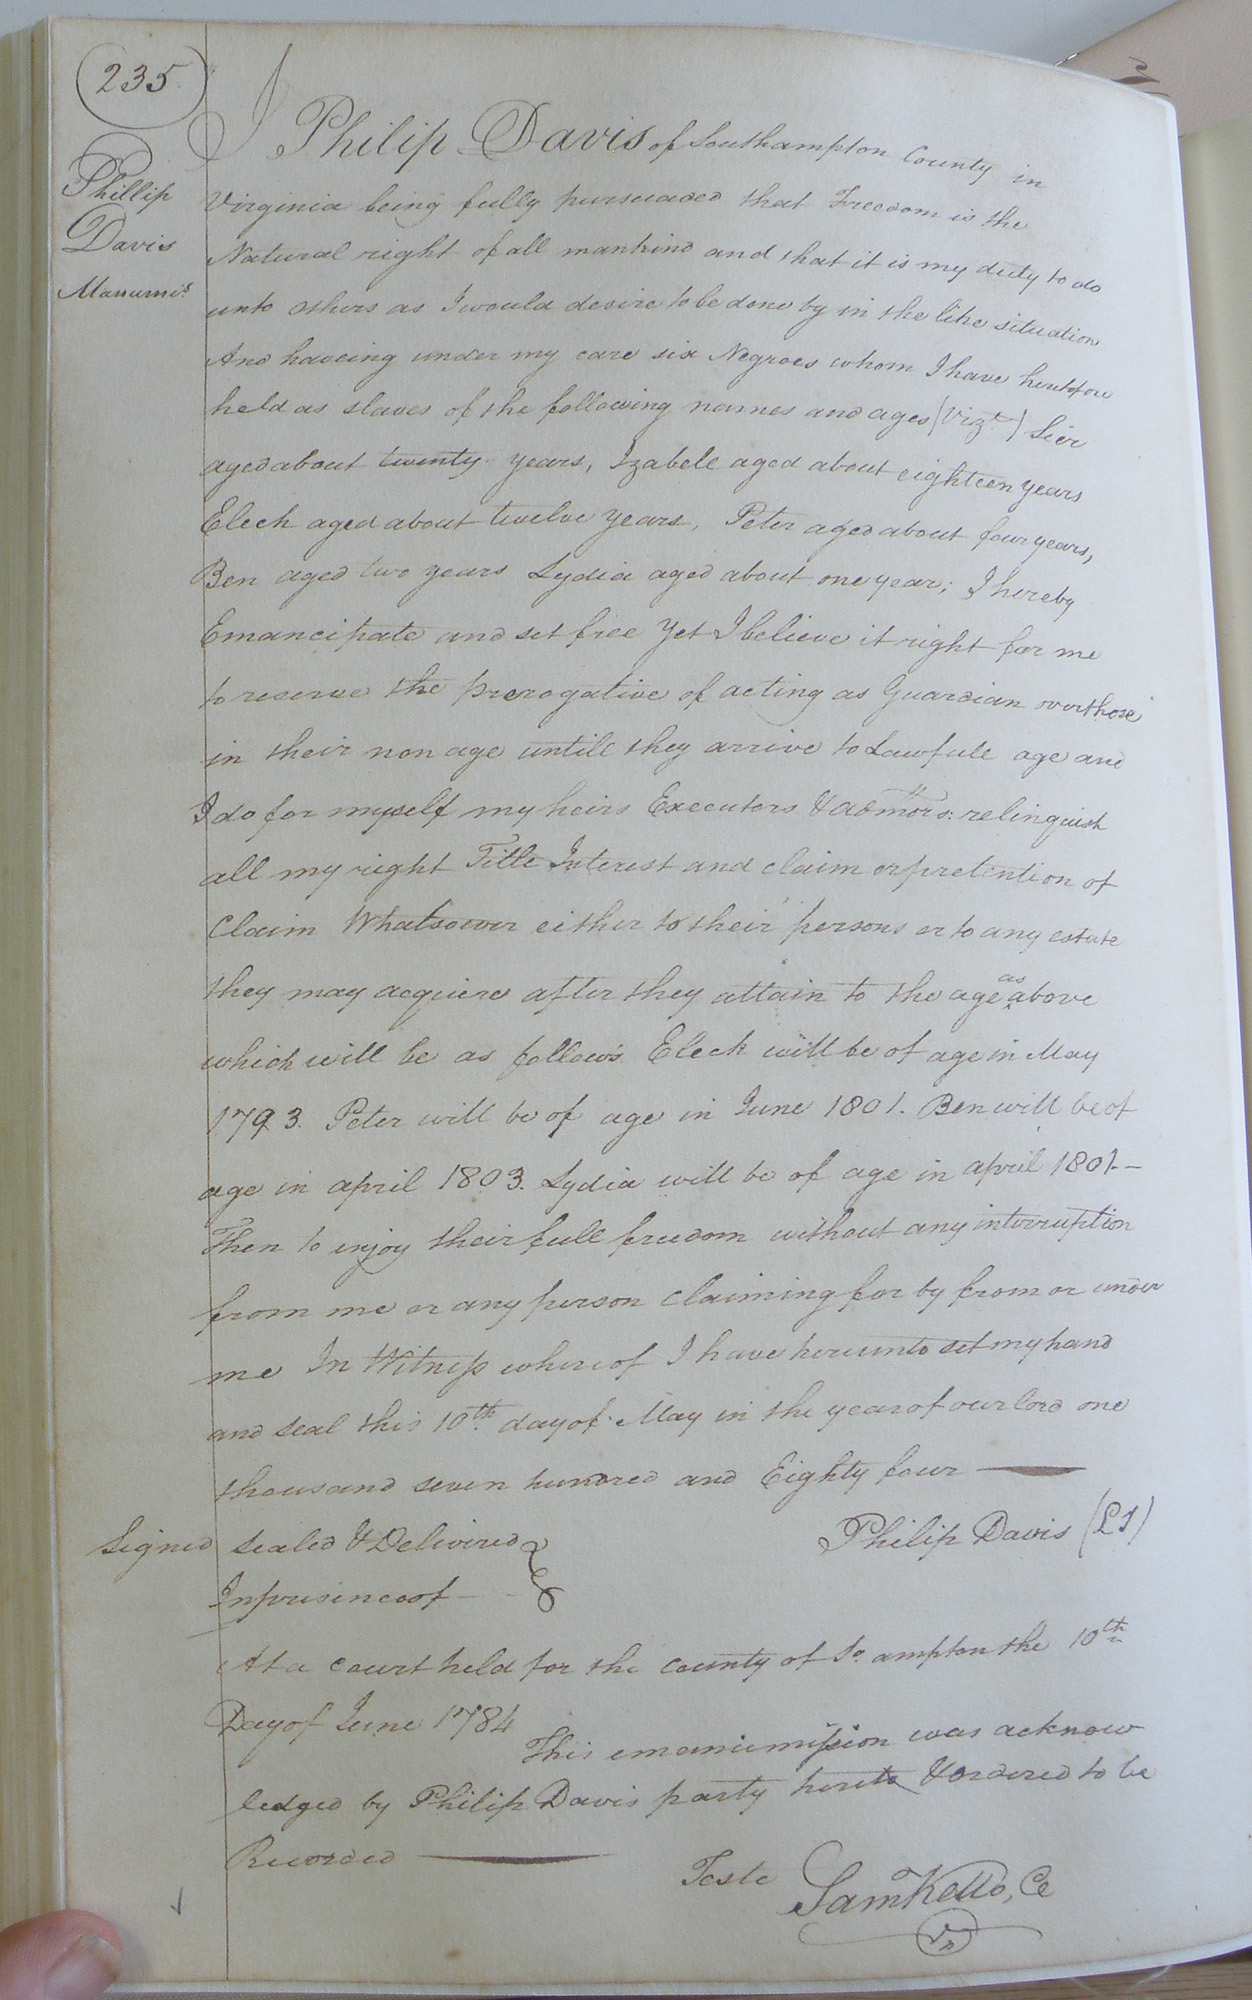 235
Phillip
Davis
Manumis.
I Philip Davis of Southampton County in
Virginia being fully pursuaded that Freedom is the
Natural right of all mankind and that it is my duty to do
unto others as I would desire to be done by in the like situation
And haveing under my care six Negroes whom I have heretofore
held as slaves of the following names and ages (Vizt.)
aged about twenty years, Izabell aged about eighteen years
Eleck aged about twelve years, Peter aged about four years,
Ben aged two years Lydia aged about one year; I hereby
Emancipate and set free Yet I believe it right for me
to reserve the prerogative of acting as Guardian over those
in their non age untill they arrive to Lawfull age and
I do for myself my heirs Executors & admors: relinquish
all my right Title Interest and claim or pretention of
Claim Whatsoever either to their persons or to any estate
they may acquiere after they attain to the age as above
which will be as follows Eleck will be of age in May
1793. Peter will be of age in June 1801. Ben will be of
age in april 1803. Lydia will be of age in april 1801.—
Then to injoy their full freedom without any interruption
from me or any person Claiming for by from or under
me In Witness whereof I have hereunto set my hand
and seal this 10th day of May in the year of our lord one
thousand seven hundred and Eighty four —
Signed sealed & Delivered Philip Davis (LS)
In presince of
At a court held for the county of So. ampton the 10th
Day of June 1784
This emanimission was acknow
ledged by Philip Davis party hereto & ordered to be
Recorded —
Teste Saml Kello, Ce